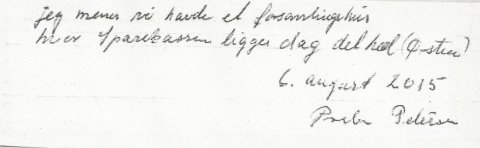 jeg mener vi havde et forsamlingshus
hvor Sparekassen ligger dag det hed
6. august 2015
Petersen